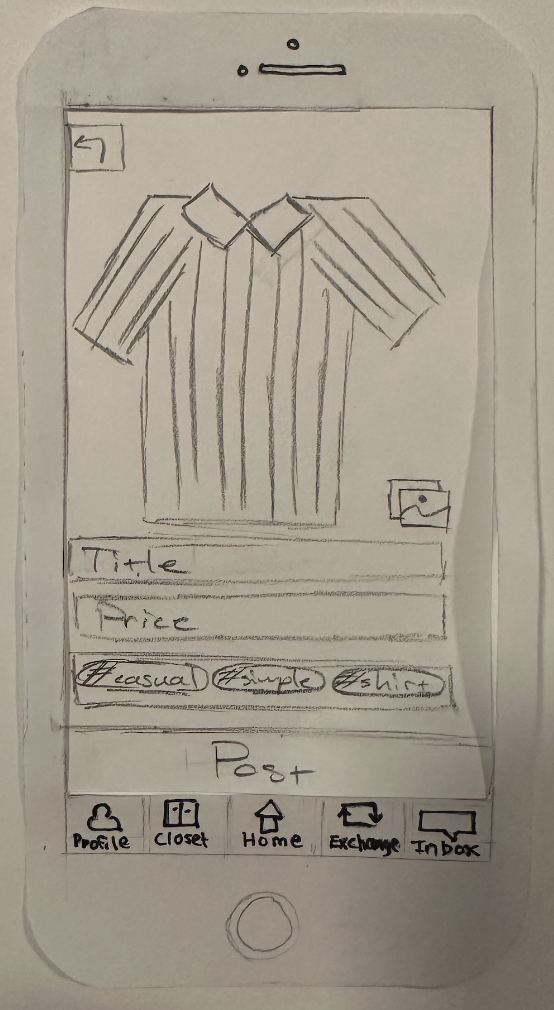 Title
Price
#casual #simple #shirt
Post
Profile Closet Home Exchange Inbox